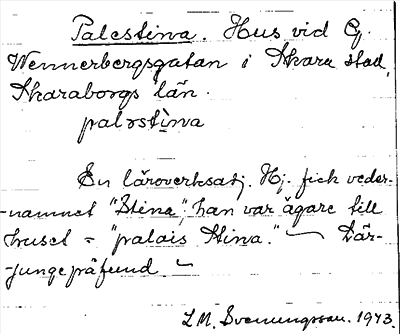 Palestina. Hus vid G.
Wennerbergsgatan i Skara stad,
Skaraborgs län.
palɘstina
En läroverksadj. Hj. fick veder-
-namnet "Stina", han var ägare till
huset = "palais Stina." ~ Där-
-junge på fund ~
L.M. Svenungsson. 1973.